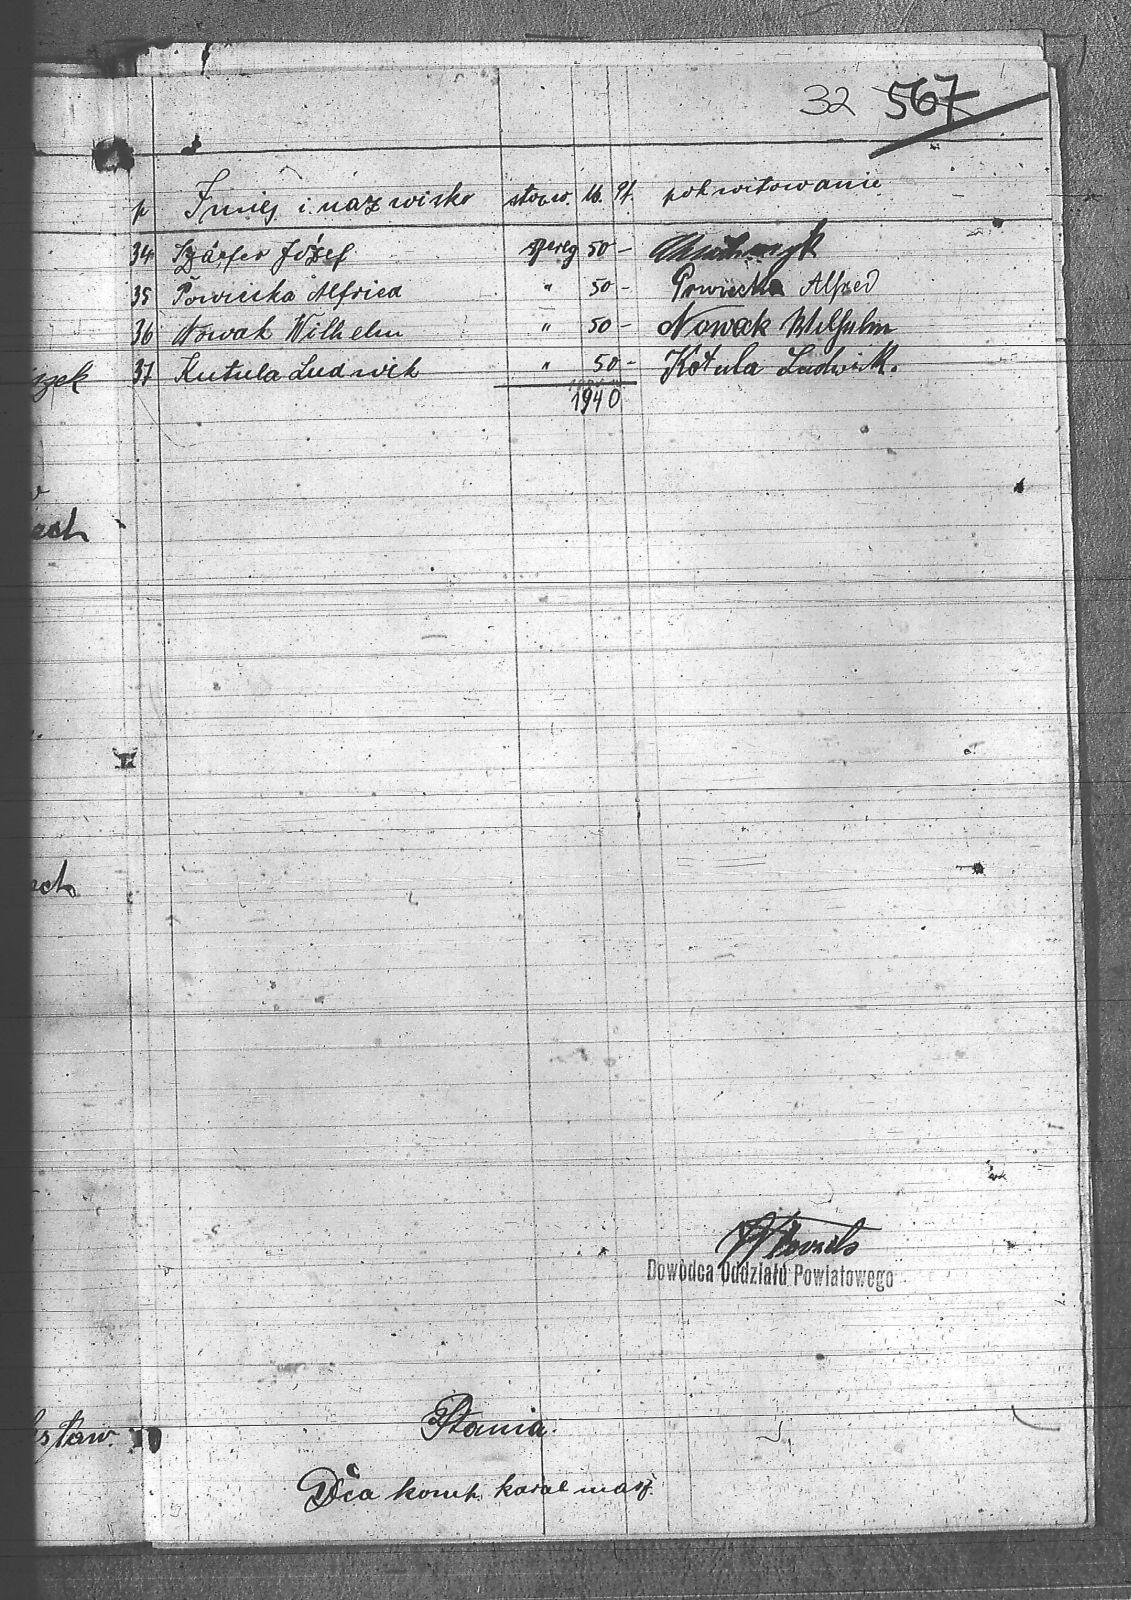 32 567
p Imię i nazwisko stopn. M. pf. pokwitowanie
34 Szárfer Józef szereg 50 -
35 Powiecka Alfried " 50 - Powiecka Alfred
36 Nowak Wilhelm " 50 - Nowak Wilhelm
37 Kutula Ludwik " 50 - Kotula Ludwik.
1940
szek
ach
ach
Dowódca Oddziału Powiatowego
staw.
Stania.
Dca komp. karab masz.